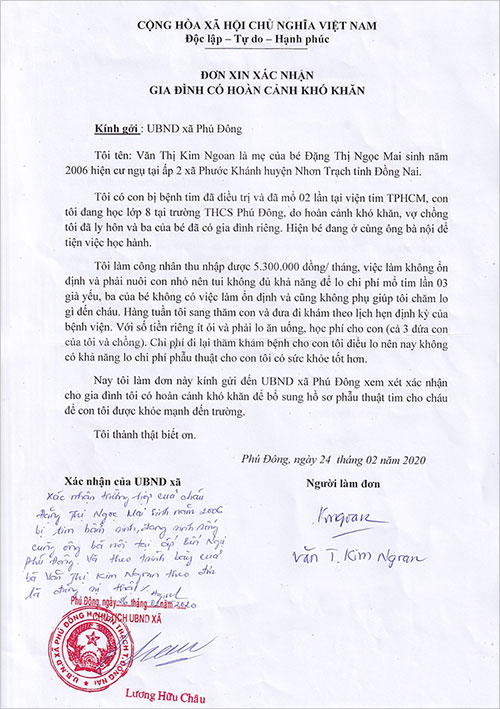 CỘNG HÒA XÃ HỘI CHỦ NGHĨA VIỆT NAM
Độc lập – Tự do – Hạnh phúc
ĐƠN XIN XÁC NHẬN
GIA ĐÌNH CÓ HOÀN CẢNH KHÓ KHĂN
Kính gởi : UBND xã Phú Đông
Tôi tên: Văn Thị Kim Ngoan là mẹ của bé Đặng Thị Ngọc Mai sinh năm
2006 hiện cư ngụ tại ấp 2 xã Phước Khánh huyện Nhơn Trạch tỉnh Đồng Nai.
Tôi có con bị bệnh tim đã điều trị và đã mổ 02 lần tại viện tim TPHCM, con
tôi đang học lớp 8 tại trường THCS Phú Đông, do hoàn cảnh khó khăn, vợ chồng
tôi đã ly hôn và ba của bé đã có gia đình riêng. Hiện bé đang ở cùng ông bà nội để
tiện việc học hành.
Tôi làm công nhân thu nhập được 5.300.000 đồng/ tháng, việc làm không ổn
định và phải nuôi con nhỏ nên tui không đủ khả năng để lo chi phí mổ tim lần 03
già yếu, ba của bé không có việc làm ổn định và cũng không phụ giúp tôi chăm lo
gì đến cháu. Hàng tuần tôi sang thăm con và đưa đi khám theo lịch hẹn định kỳ của
bệnh viện. Với số tiền riêng ít ỏi và phải lo ăn uống, học phí cho con (cả 3 đứa con
của tôi và chồng). Chi phí đi lại thăm khám bệnh cho con tôi điều lo nên nay không
có khả năng lo chi phí phẫu thuật cho con tôi có sức khỏe tốt hơn.
Nay tôi làm đơn này kính gửi đến UBND xã Phú Đông xem xét xác nhận
cho gia đình tôi có hoàn cảnh khó khăn để bổ sung hồ sơ phẫu thuật tim cho cháu
để con tôi được khỏe mạnh đến trường.
Tôi thành thật biết ơn.
Phú Đông, ngày 24 tháng 02 năm 2020
Xác nhận của UBND xã
Người làm đơn
Xác nhận trường hợp của cháu
Đặng Thị Ngọc Mai sinh năm 2006
bị tim bẩm sinh, đang sinh sống
cùng ông bà nội tại ấp
Phú Đông. Và theo trình bày của
bà Văn Thị Kim Ngoan theo đơn
là đúng sự thật
Kngoan
Văn T. Kim Ngoan
Phú Đông, ngày 26 tháng 02 năm 2020
CHỦ TỊCH UBND XÃ
U.B.N.D XÃ PHÚ ĐÔNG H. NHƠN TRẠCH T. ĐỒNG NAI
Lương Hữu Châu